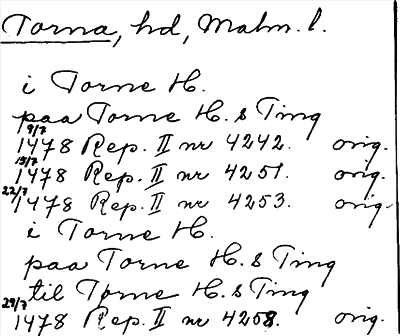 Torna, hd, Malm. l.
i Torne H.
paa Torne H. s Ting
9/7
1478 Rep. II nr 4242. orig.
15/7
1478 Rep. II nr 4251. orig.
22/7
1478 Rep. II nr 4253. orig.
i Torne H.
paa Torne H. s Ting
til Torne H. s Ting
29/7
1478 Rep. II nr 4258. orig.